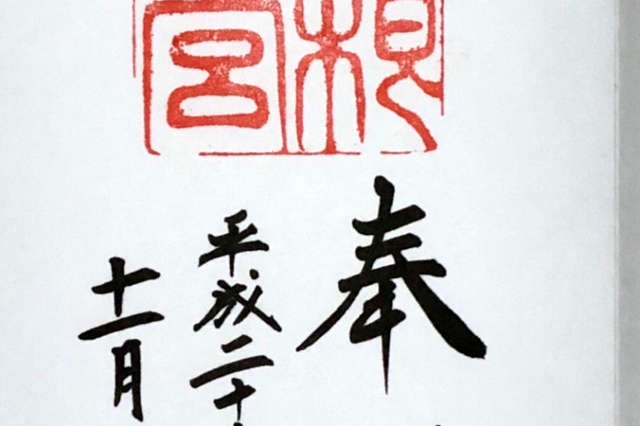 根
宮
奉
平成二十
十一月